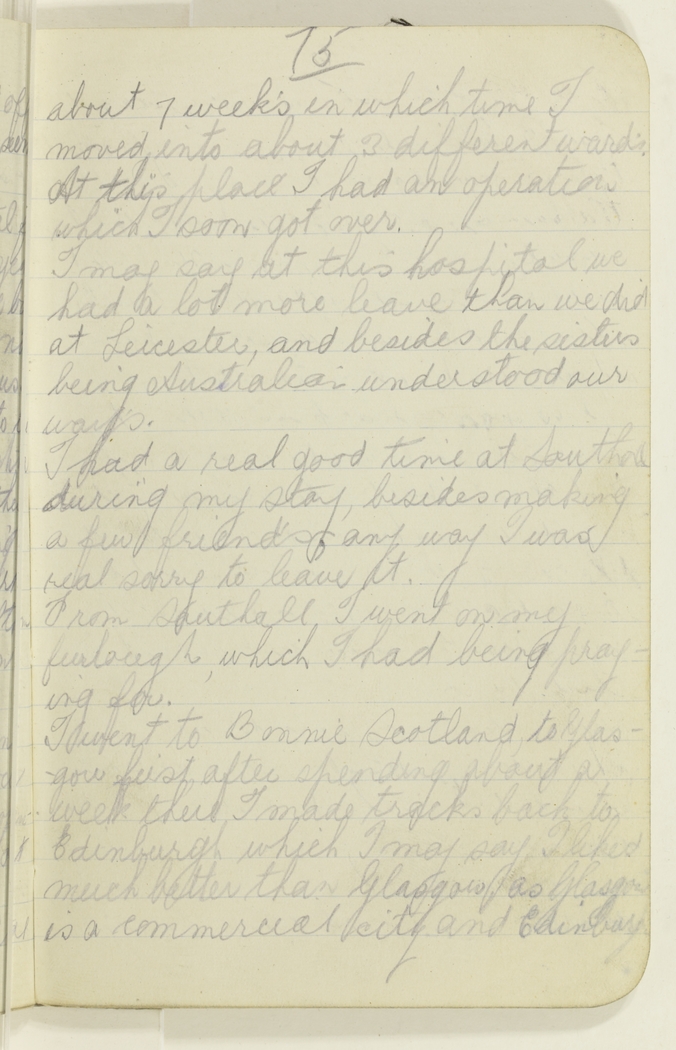 75
about 7 week's in which time I
moved into about 3 different wards.
At this place I had an operation
which I soon got over.
I may say at this hospital we
had a lot more leave than we did
at Leicester, and besides the sisters
being Australian understood our
way's.
I had a real good time at Southall
during my stay, besides making
a few friend's, any way I was
real sorry to leave it.
From Southall I went on my
furlough, which I had being pray-
ing for.
I went to Bonnie Scotland to Glas-
-gow first, after spending about a
week there I made tracks back to
Edinburgh which I may say I liked
much better than Glasgow, as Glasgow
is a commercial city and Edinburgh